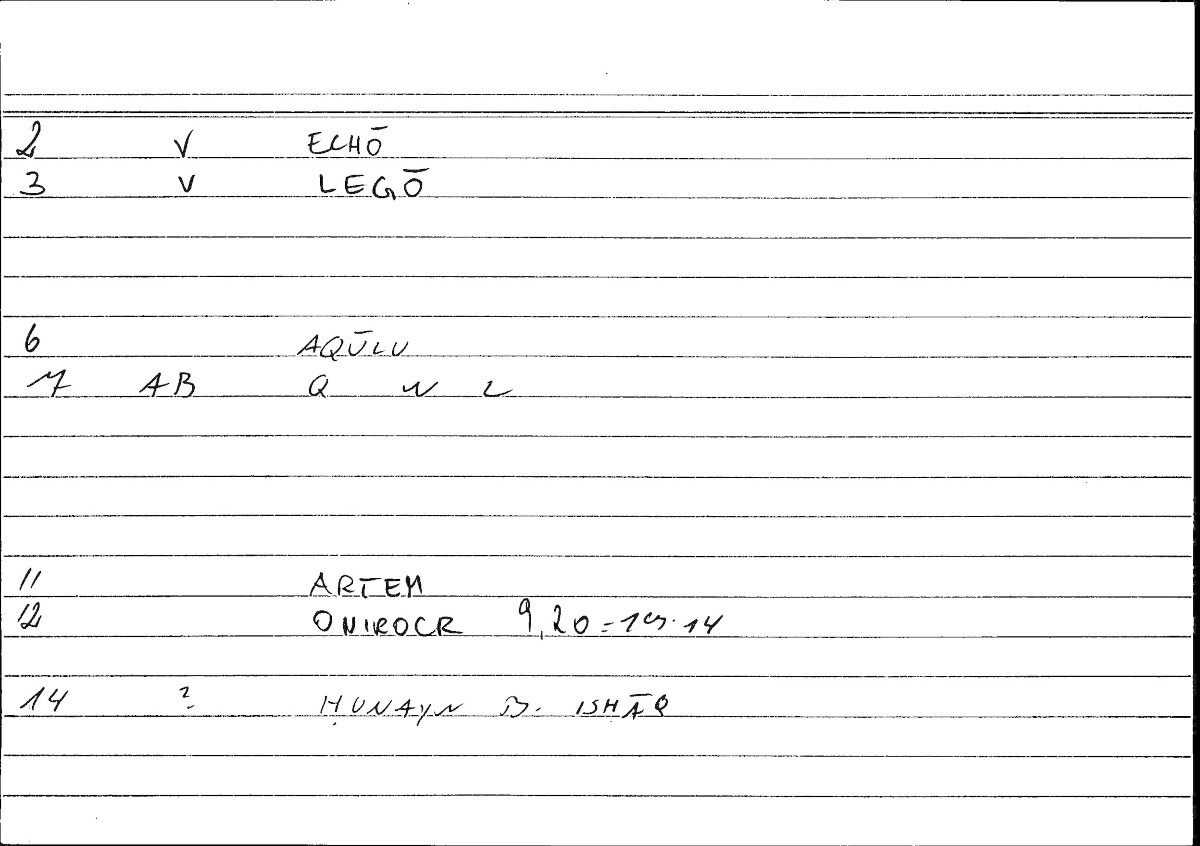 2 V ECHŌ
3 V LEGŌ
6 AQŪLU
7 AB Q W L
11 ARTEM
12 ONIROCR 9,20 = 14
14 ? ḤUNAYN B. ISḤĀQ